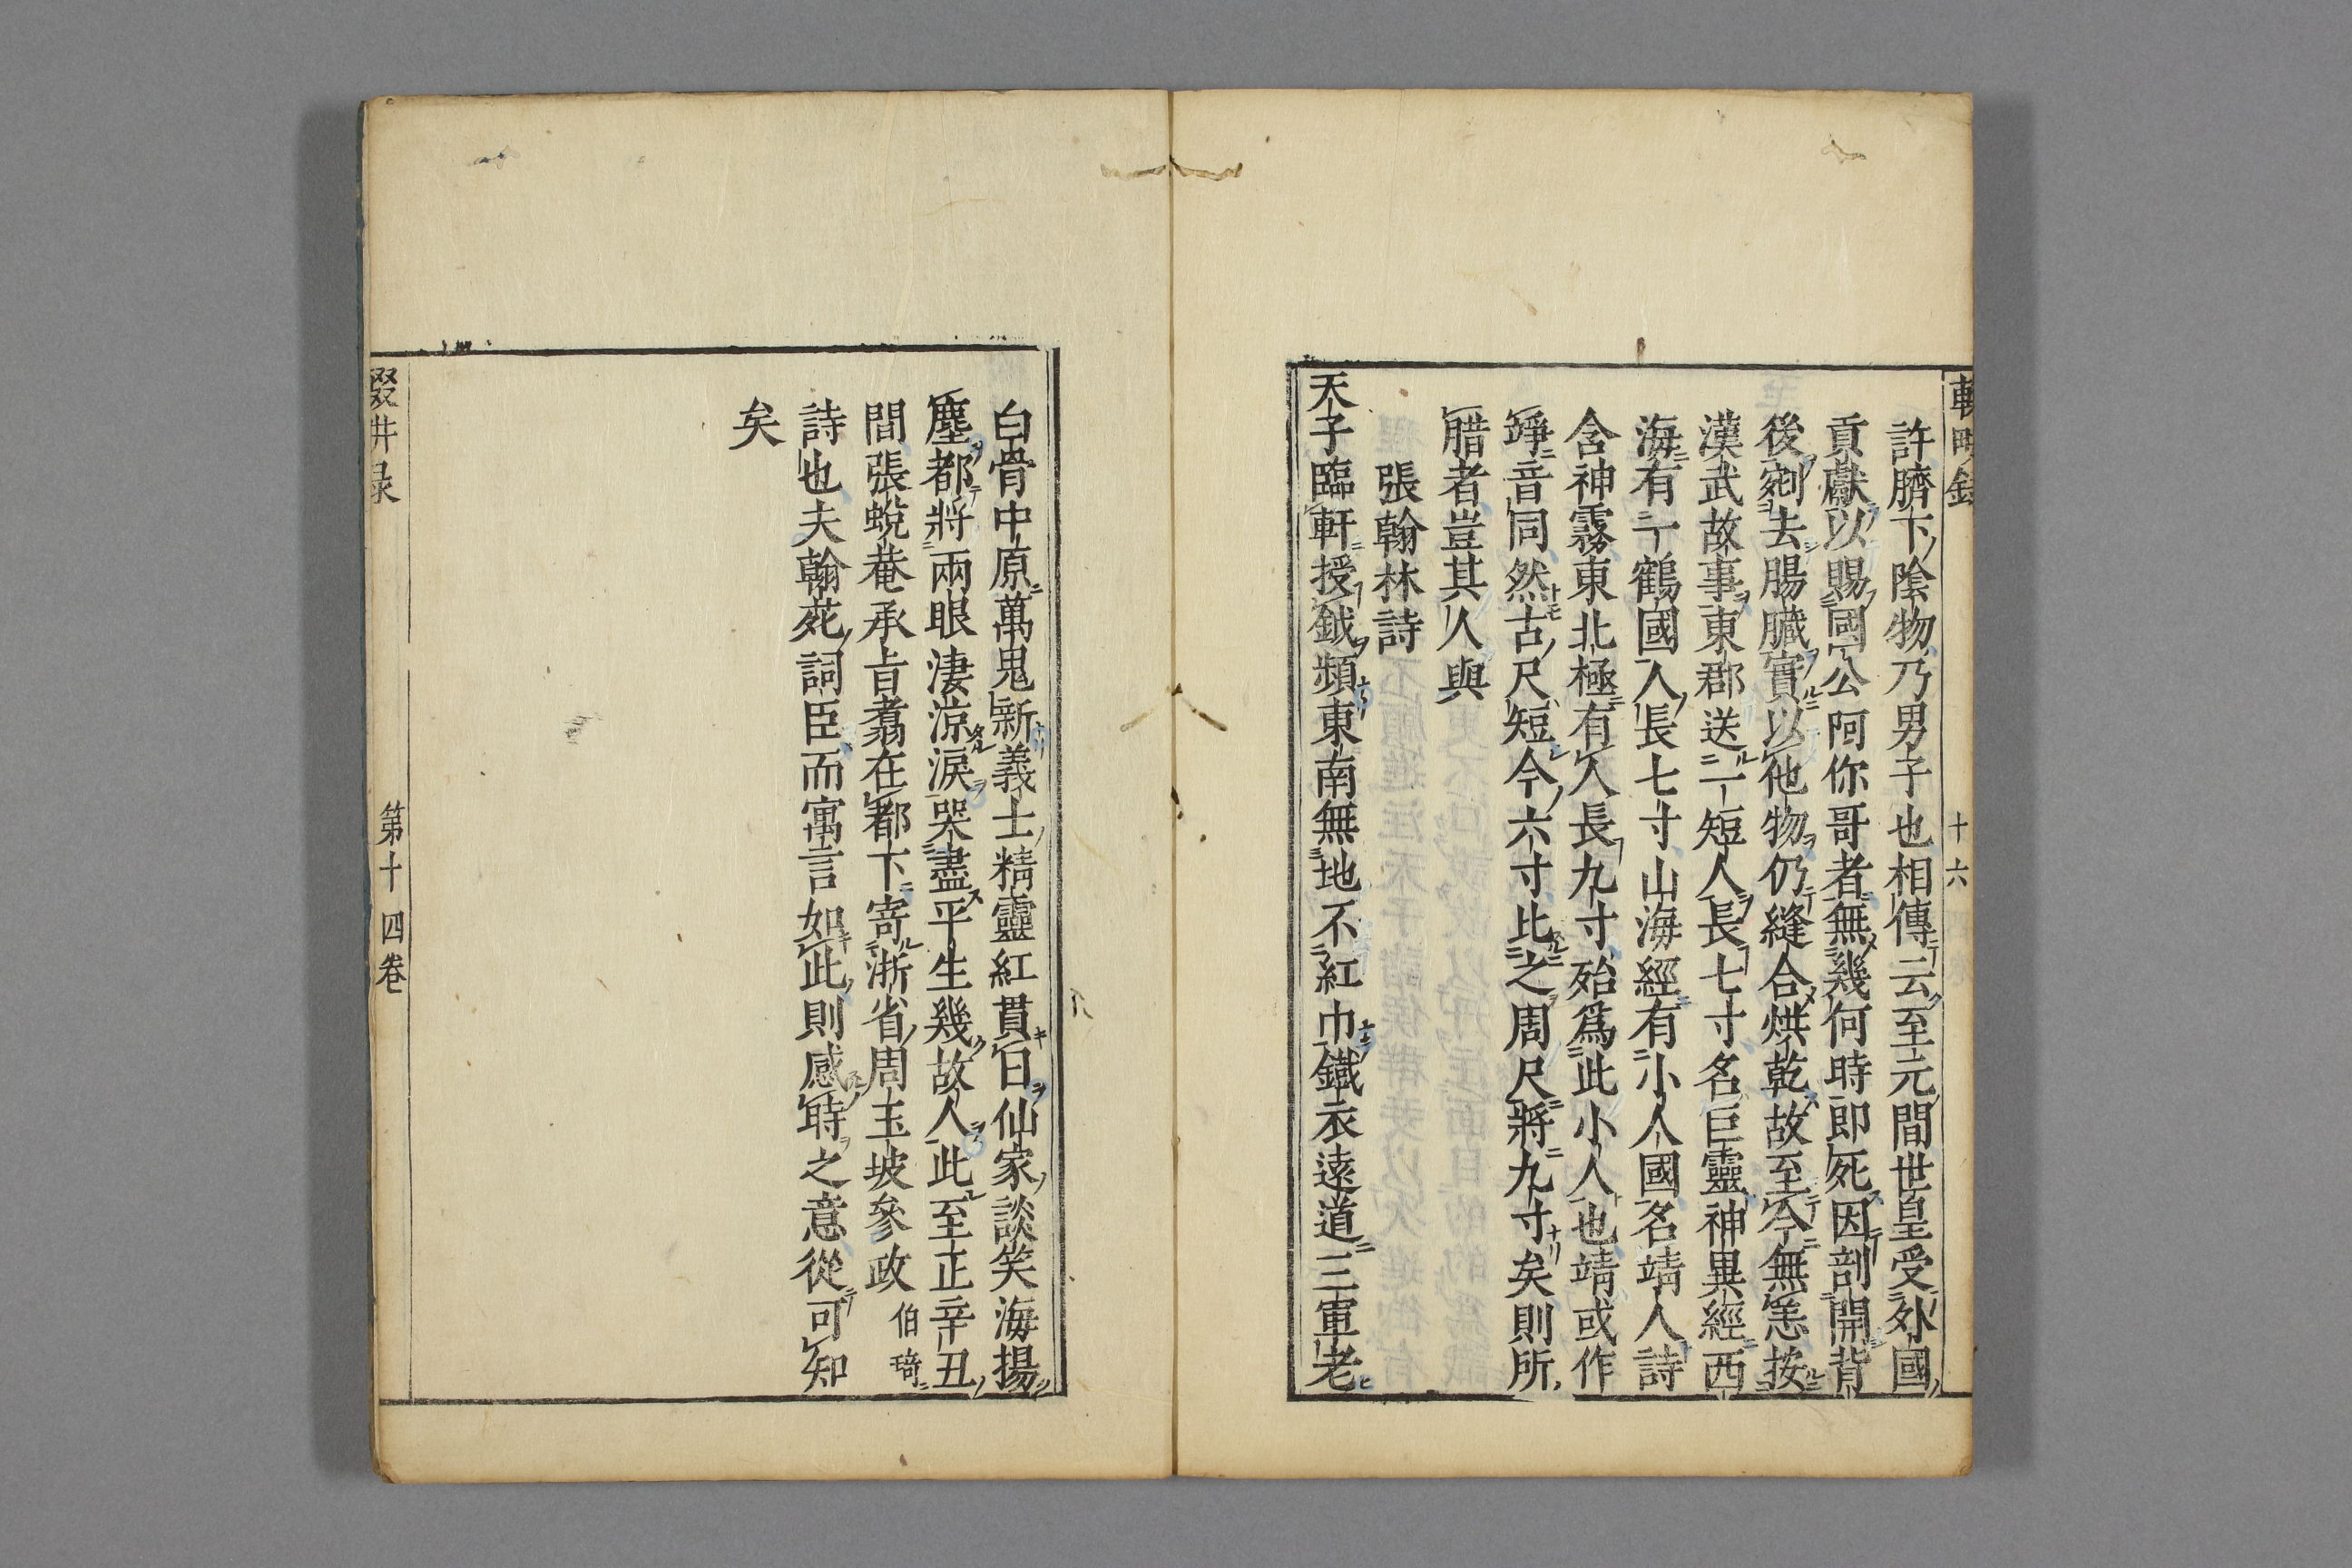 十六
許臍下陰物乃男子也相傳云至元間世皇受外國
貢獻以賜國公阿你哥者無幾何時即死因剖開背
後剜去腸臟實以他物仍縫合烘乾故至今無恙按
漢武故事東郡送一短人長七寸名巨靈神異經西
海有一鶴國人長七寸山海經有小人國名靖人詩
含神霧東北極有人長九寸殆爲此小人也靖或作
竫音同然古尺短今六寸比之周尺將九寸矣則所
腊者豈其人與
張翰林詩
天子臨軒授鉞頻東南無地不紅巾鐵衣遠道三軍老
白骨中原萬鬼新義士精靈紅貫日仙家談笑海揚
塵都將兩眼淒涼淚哭盡平生幾故人此至正辛丑
間張蛻菴承旨翥在都下寄浙省周玉坡參政伯琦
詩也夫翰苑詞臣而寓言如此則感時之意從可知
矣
第十四卷